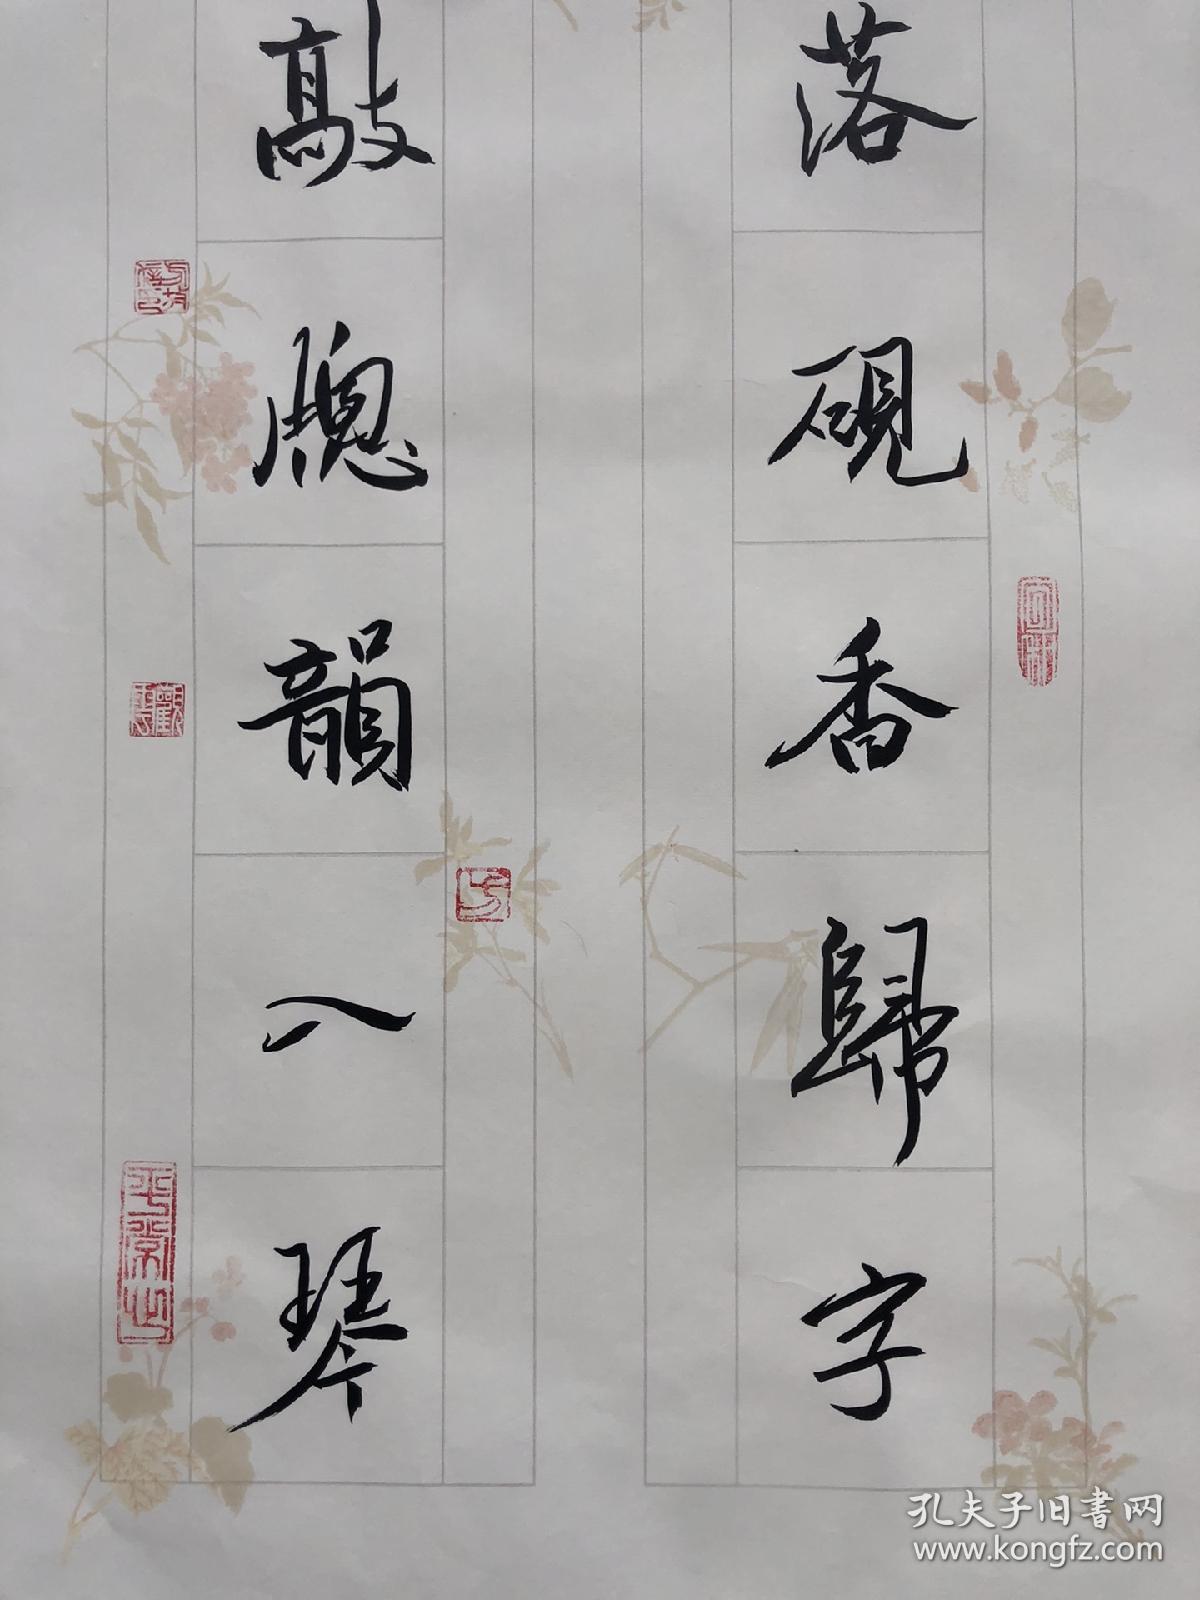 落砚香歸字
敲牕韻入琴
觀
平常心
孔夫子旧书网
www.kongfz.com